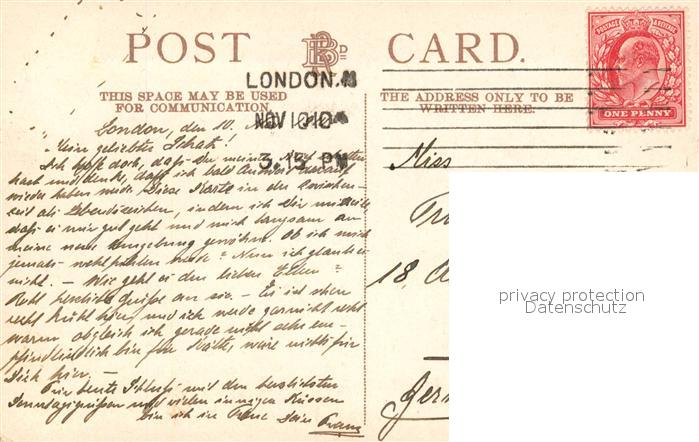 POST CARD.
THIS SPACE MAY BE USED
FOR COMMUNICATION.
THE ADDRESS ONLY TO BE
WRITTEN HERE.
LONDON.
NOV 10 10
3.15 PM
POSTAGE REVENUE
ONE PENNY
London, den 10. Nov.
Meine geliebter Schatz!
Ich hoffe doch, daß Du meinen
hast und denke, daß ich bald Antwort darauf
wieder haben werde. Diese Karte in der Zwischen-
zeit als Lebenszeichen, indem ich Dir mitteile
daß es mir gut geht und mich langsam an
meine neue Umgebung gewöhne. Ob ich mich
jemals wohl fühlen werde? Nun ich glaube es
nicht. – Wie geht es den lieben Eltern?
Recht herzliche Grüße an sie. – Es ist schon
recht kühl hier, und ich werde garnicht recht
warm obgleich ich gerade nicht sehr em-
pfindlich bin für Kälte, wäre nichts für
Dich hier. –
Für heute Schluß mit den herzlichsten
Sonntagsgrüßen und vielen innigen Küssen
bin ich in Treue Dein Franz
Miss
18,
Ger
privacy protection
Datenschutz